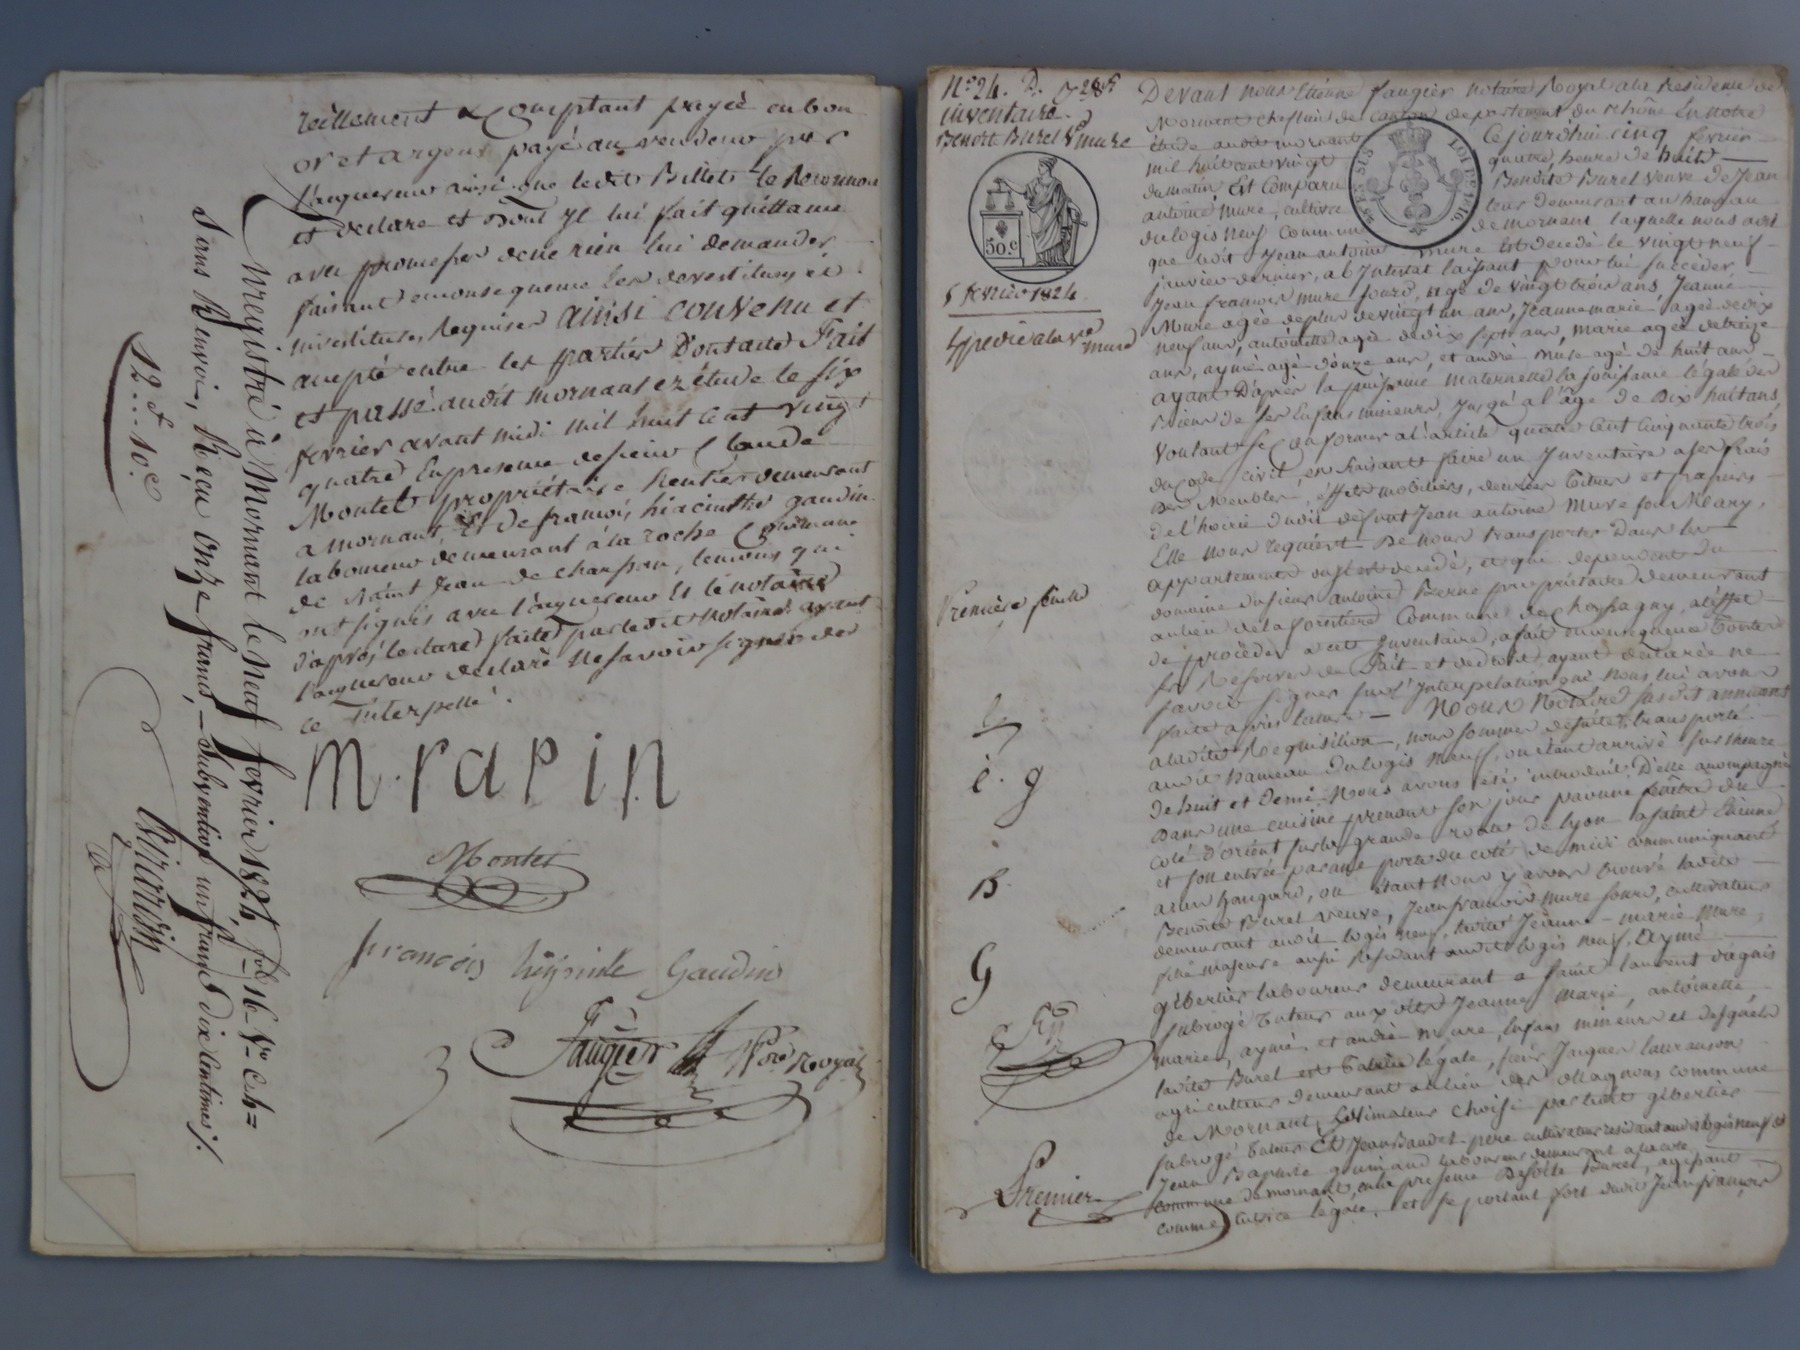 réellement & Comptant payée en bon
or et argent payé au vendeur par
l'acquereur ainsi que ledit Billet le Reconnoit
et declare et dont Il lui fait quittance
avec promesse de ne rien lui demander
faisant en consequence les devestitures et
investitures Requises ainsi convenu et
accepté entre les parties Dont acte Fait
et passé audit mornant ez étude le six
fevrier avant midi mil huit cent vingt
quatre En presence de sieur Claude
Montet propriétaire Rentier demeurant
a mornant, Et de françois hiacinthe gaudin
laboureur demeurant à la roche Commune
de Saint Jean de Chaussan, temoins qui
ont signés avec l'acquereur Et le notaire
d'après lecture faite par ledit Notaire ayant
l'acquereur declaré ne savoir signer de
ce Interpellé.
M. rapin
Montet
françois hiysinte Gaudin
Faugier Nore Royal
Enregistré à Mornant le Neuf fevrier 1824 fol 16 Vo C. 4 =
Sans Renvoi, Reçu onze francs, - Subvention un franc dix Centimes /.
12f..10c
No 24. D. 728f
inventaire.
Benoite Burel Ve mure
50.c
5 fevrier 1824
Expedié a la ve mure
Première feuille
e. g
B.
G
Premier
Devant Nous Etienne faugier notaire Royal a la Residence de
Mornant Chef lieu de canton departement du Rhône En notre
étude audit mornant Ce jourd'hui cinq fevrier
mil huit cent vingt quatre, heure de huit
du matin Est Comparu Benoite Burel Veuve de Jean
antoine mure, cultivateur demeurant au hameau
du logis neuf Commune de mornant laquelle nous a dit
que ledit Jean antoine mure Est decedé le vingt neuf
janvier dernier, ab Intestat laissant pour lui succéder,
Jean françois mure sourd, agé de vingt trois ans, Jeanne
Mure agée de plus de vingt un ans, Jeanne marie agée de dix
neuf ans, antoinette agée de dix sept ans, marie agée de treize
ans, aymé agé d'onze ans, et andré mure agé de huit ans
ayant D'après la puissance maternelle la jouissance légale des
Biens de ses Enfans mineurs, Jusqu'a l'âge de Dix huit ans,
Voulant se Conformer a l'article quatre cent cinquante trois
du Code Civil, en faisant faire un Inventaire a ses frais
Des Meubles, éffets mobiliers, denrées titres et papiers
de l'hoirie dudit défunt Jean antoine Mure son Mary,
Elle nous requiert De nous transporter Dans les
appartements ou il est decedé, et qui dependent du
domaine du sieur antoine propriétaire demeurant
au lieu de la forestière Commune de Chassagny, a l'éffet
de procéder a cet Inventaire, a fait en consequence toutes
ses Reserves de Fait et de droit, ayant declarée ne
savoir signer sur l'Interpelation que nous lui avons
faite après lecture — Nous Notaire susdit annuant
a ladite Requisition, nous sommes de suite transporté
audit hameau du logis neuf, ou étant arrivé sur l'heure
de huit et Demi, Nous avons été introduit D'elle accompagné
Dans une cuisine prenant son jour par une fenêtre du
coté D'orient sur la grande route de lyon a saint Etienne
et son entrée par une porte du coté de midi communiquant
a un hangard, ou étant Nous y avons trouvé ladite
Benoite Burel veuve, Jean françois mure sourd, cultivateur
demeurant audit logis neuf, ladite Jeanne-marie Mure,
fille majeure aussi Residant audit logis neuf, Aymé
gibertier laboureur demeurant a saint laurent d'agnis
subrogé tuteur auxdits Jeanne Marie, antoinette,
marie, aymé et andré Mure, Enfans mineurs et desquels
ladite Burel est tutrice légale, sieur Jacques
agriculteur demeurant au lieu des ollagnons commune
de Mornant, Estimateur choisi par ledit gibertier
subrogé tuteur Et Jean Baudet père cultivateur residant audit logis neuf &
Jean Baptiste guinand laboureur demeurant a la cote
commune de mornant, en la présence Benoite Burel, agissant
comme tutrice légale, et se portant fort dudit Jean françois